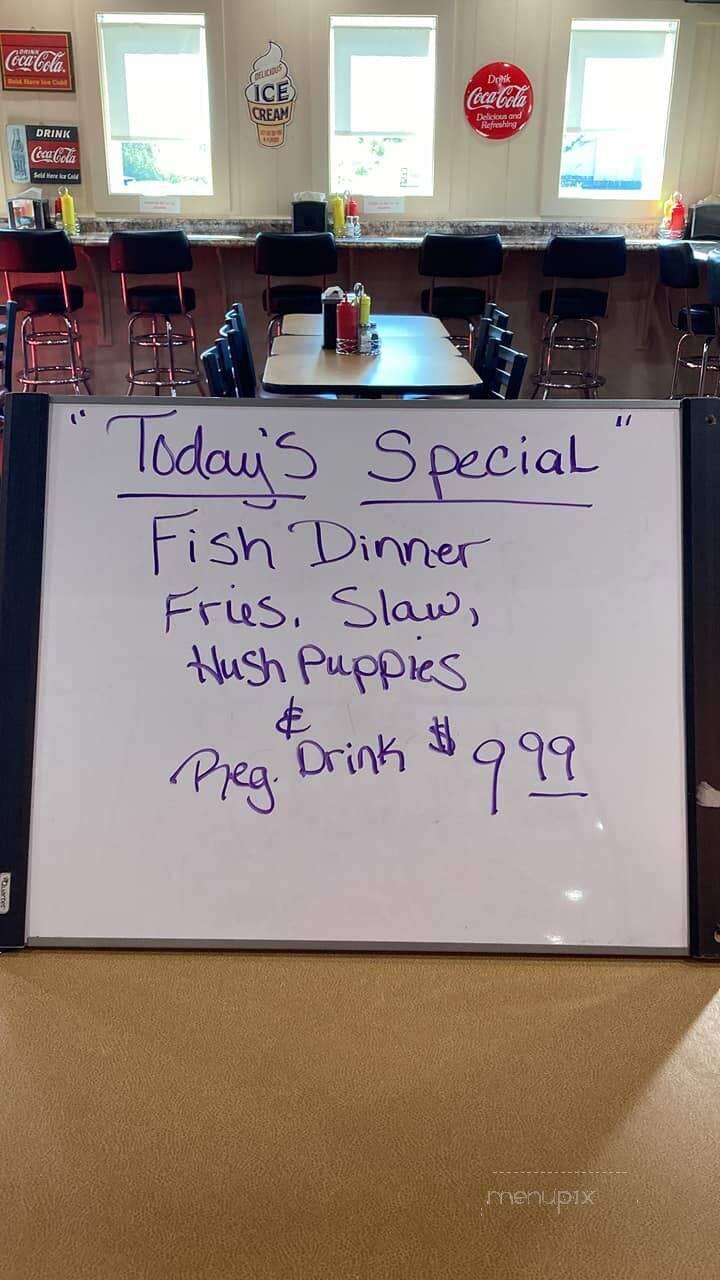 DRINK
Coca-Cola
Sold Here Ice Cold
DELICIOUS
ICE
CREAM
Drink
Coca-Cola
Delicious and
Refreshing
DRINK
Coca-Cola
Sold Here Ice Cold
"Today's Special"
Fish Dinner
Fries, Slaw,
Hush Puppies
&
Reg. Drink $9.99
Quartet
menupix